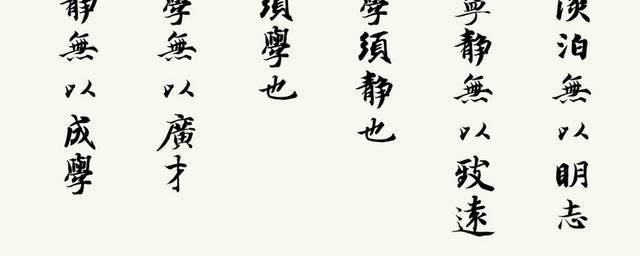 淡泊無以明志
寧静無以致遠
學須静也
須學也
學無以廣才
静無以成學